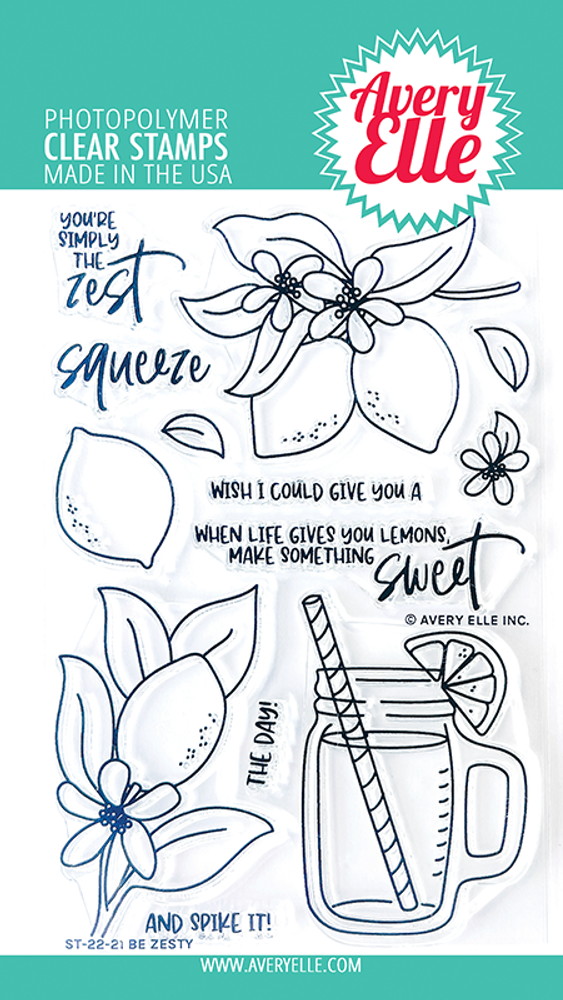 PHOTOPOLYMER
CLEAR STAMPS
MADE IN THE USA
Avery
Elle
YOU'RE
SIMPLY
THE
zest
squeeze
WISH I COULD GIVE YOU A
WHEN LIFE GIVES YOU LEMONS,
MAKE SOMETHING
sweet
© AVERY ELLE INC.
THE DAY!
AND SPIKE IT!
ST-22-21 BE ZESTY
WWW.AVERYELLE.COM